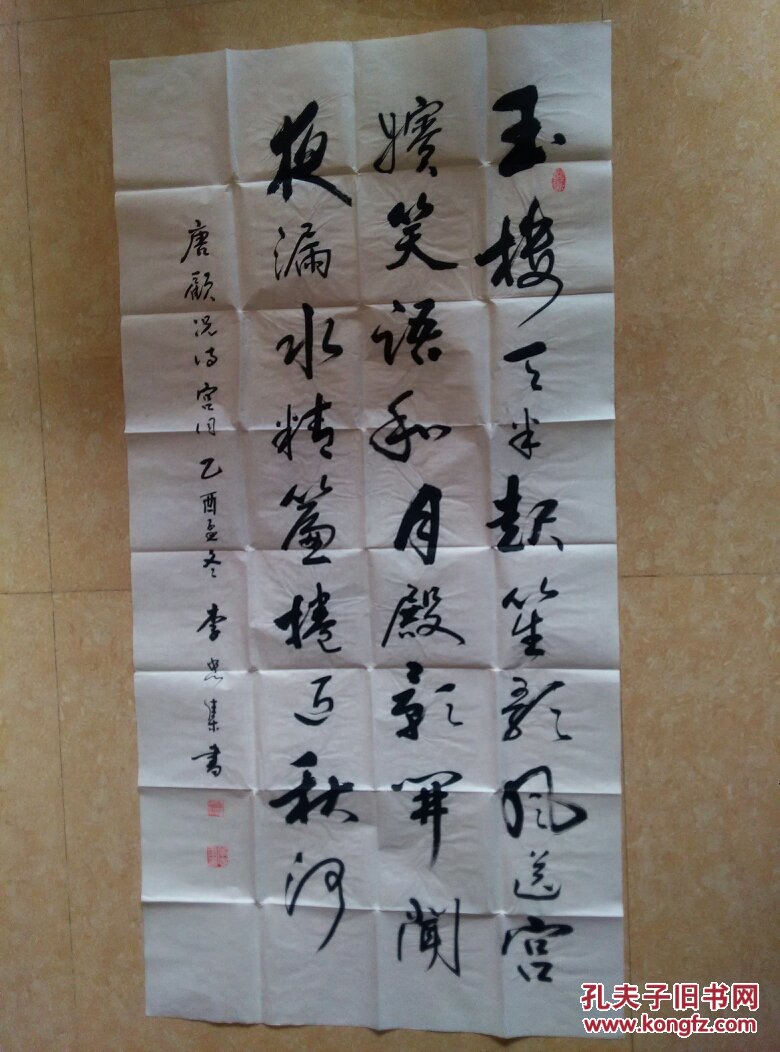 玉樓天半起笙歌風送宮
嬪笑語和月殿影開聞
夜漏水精簾捲近秋河
唐顧況诗宮詞乙酉孟冬李忠集書
孔夫子旧书网
www.kongfz.com